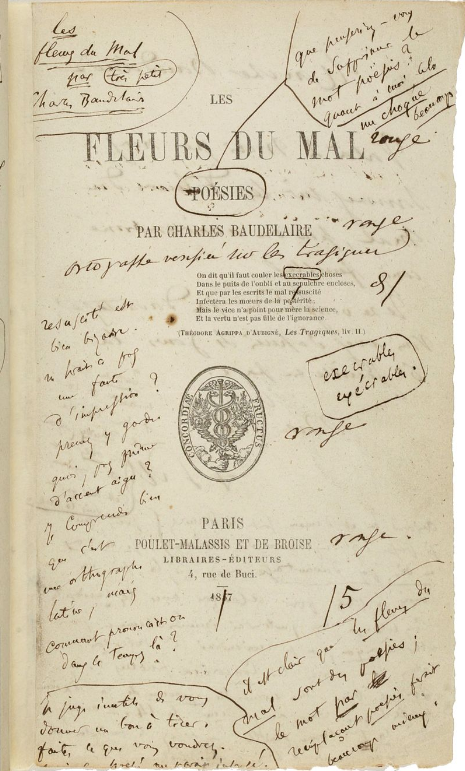 les
fleurs du Mal
par trop petit
Charles Baudelaire
que penseriez-vous
de supprimer le
mot poésies ?
quant à moi cela
me choque
beaucoup
rouge.
LES
FLEURS DU MAL
POÉSIES
PAR CHARLES BAUDELAIRE
rouge
ortographe sur les Tragiques
On dit qu'il faut couler les execrables choses
Dans le puits de l'oubli et au sepulchre encloses,
Et que par les escrits le mal resuscité
Infectera les mœurs de la postérité ;
Mais le vice n'a point pour mère la science,
Et la vertu n'est pas fille de l'ignorance.
(THÉODORE AGRIPPA D'AUBIGNÉ, Les Tragiques, liv. II)
resuscité est
bien bizarre.
une faute
d'impression ?
prenez y garde.
quoi, pas même
d'accent aigu ?
je comprends bien
que c'est
une orthographe
latine, mais
comment prononçait on
dans le temps là ?
execrables
exécrables.
CONCORDIÆ FRUCTUS
rouge
PARIS
POULET-MALASSIS ET DE BROISE
rouge.
LIBRAIRES-ÉDITEURS
4, rue de Buci.
1857
/5
il est clair que les fleurs du
mal sont des poésies ;
le mot par
remplaçant poésies ferait
beaucoup mieux.
Je juge inutile de vous
donner un bon à tirer.
faites ce que vous voudrez.